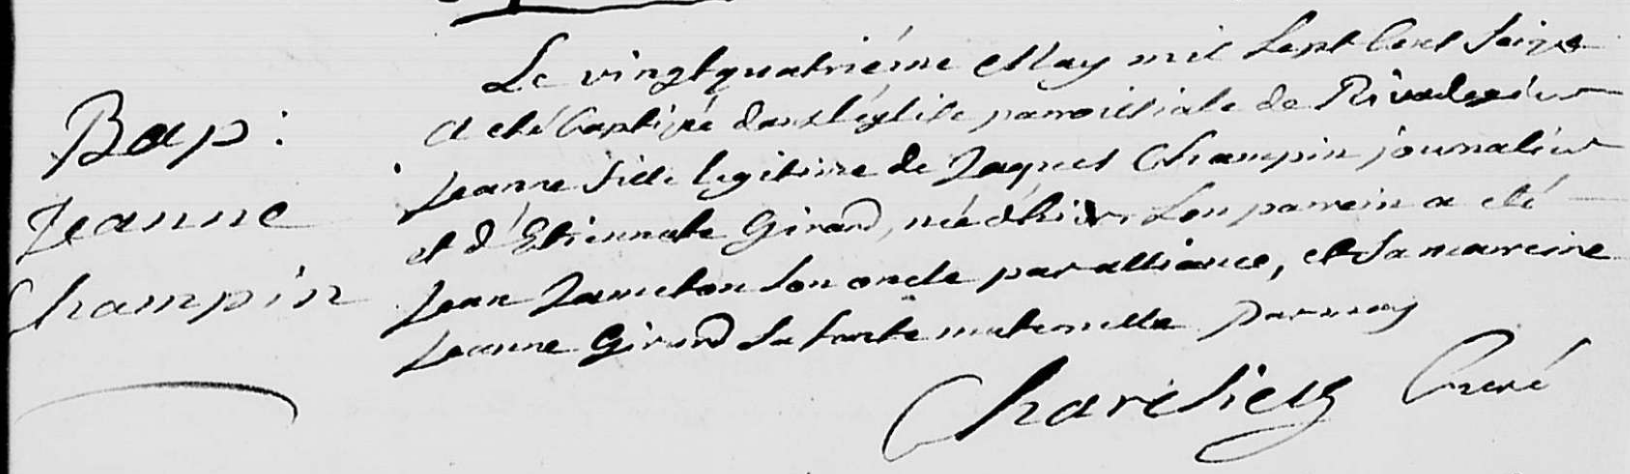 Bap:
Jeanne
Champin
Le vingtquatriéme May mil sept cent seize
a eté baptizée dans l'églile parroissiale de
Jeanne fille legitime de Jaques Champin journalier
et d'Etiennete Girard, née d'hier. Son parrein a eté
Jean son oncle par alliance, et sa marreine
Jeanne Girard sa tante maternelle par moy
Curé